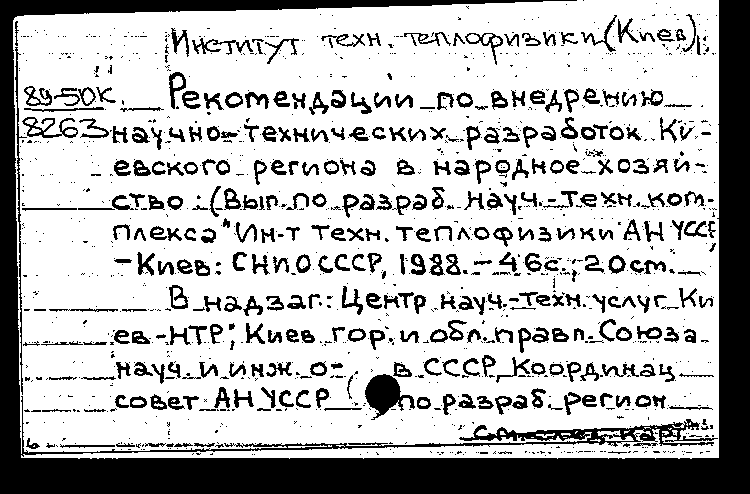 Институт техн. теплофизики (Киев).
89-50К Рекомендации по внедрению
8263 научно-технических разработок Ки-
евского региона в народное хозяй-
ство: (Вып. по разраб. науч.-техн. ком-
плекса "Ин-т техн. теплофизики АН УССР
- Киев: СНИО СССР, 1988. - 46с.; 20 см.
В надзаг.: Центр науч.-техн. услуг Ки
ев-НТР", Киев. гор. и обл. правл. Союза
науч. и инж. о- в СССР, Координац
совет АН УССР ( по разраб. регион
См. след. карт.